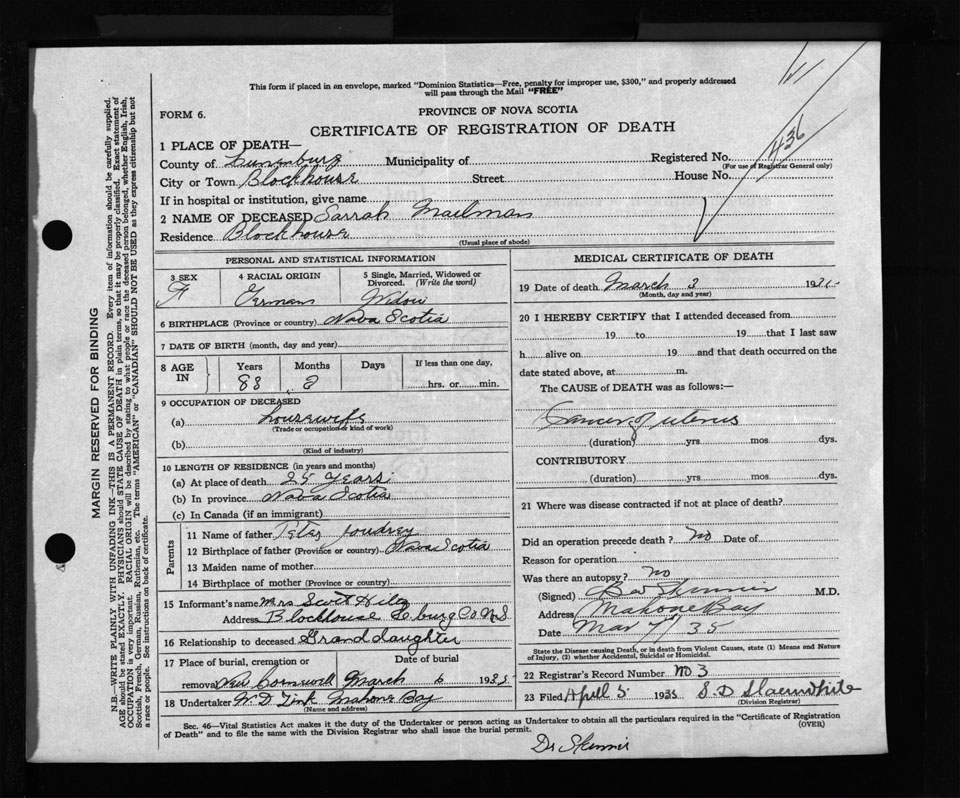 This form if placed in an envelope, marked "Dominion Statistics—Free, penalty for improper use, $300," and properly addressed
will pass through the Mail "FREE"
436
FORM 6.
PROVINCE OF NOVA SCOTIA
CERTIFICATE OF REGISTRATION OF DEATH
1 PLACE OF DEATH—
County of Lunenburg Municipality of Registered No.
(For use of Registrar General only)
City or Town Blockhouse Street House No.
If in hospital or institution, give name
2 NAME OF DECEASED Sarrah Mailman
Residence Blockhouse
(Usual place of abode)
PERSONAL AND STATISTICAL INFORMATION
3 SEX F
4 RACIAL ORIGIN German
5 Single, Married, Widowed or
Divorced. (Write the word)
Widow
6 BIRTHPLACE (Province or country) Nova Scotia
7 DATE OF BIRTH (month, day and year)
8 AGE IN
Years Months Days If less than one day,
88 2 hrs. or min.
9 OCCUPATION OF DECEASED
(a) housewife
(Trade or occupation or kind of work)
(b)
(Kind of industry)
10 LENGTH OF RESIDENCE (in years and months)
(a) At place of death 25 years
(b) In province Nova Scotia
(c) In Canada (if an immigrant)
Parents
11 Name of father Peter Joudrey
12 Birthplace of father (Province or country) Nova Scotia
13 Maiden name of mother
14 Birthplace of mother (Province or country)
15 Informant's name Mrs Scott Hiltz
Address Blockhouse L.burg Co N.S
16 Relationship to deceased Grand daughter
17 Place of burial, cremation or Date of burial
removal New Cornwall March 6 1935
18 Undertaker W.D. Zink Mahone Bay
(Name and address)
MEDICAL CERTIFICATE OF DEATH
19 Date of death March 3 193
(Month, day and year)
20 I HEREBY CERTIFY that I attended deceased from
19 to 19 that I last saw
h alive on 19 and that death occurred on the
date stated above, at m.
The CAUSE of DEATH was as follows:—
Cancer of uterus
(duration) yrs mos dys.
CONTRIBUTORY
(duration) yrs. mos. dys.
21 Where was disease contracted if not at place of death?
Did an operation precede death? No Date of
Reason for operation
Was there an autopsy? no
(Signed) Skinner M.D.
Address Mahone Bay
Date Mar 7/35
State the Disease causing Death, or in death from Violent Causes, state (1) Means and Nature
of Injury, (2) whether Accidental, Suicidal or Homicidal.
22 Registrar's Record Number No 3
23 Filed April 5 1935 S. D Slaenwhite
(Division Registrar)
Sec. 46—Vital Statistics Act makes it the duty of the Undertaker or person acting as Undertaker to obtain all the particulars required in the "Certificate of Registration
of Death" and to file the same with the Division Registrar who shall issue the burial permit. (OVER)
Dr Skinner
MARGIN RESERVED FOR BINDING
N.B.—WRITE PLAINLY WITH UNFADING INK—THIS IS A PERMANENT RECORD. Every item of information should be carefully supplied.
AGE should be stated EXACTLY. PHYSICIANS should STATE CAUSE OF DEATH in plain terms, so that it may be properly classified. Exact statement of
OCCUPATION is very important. RACIAL ORIGIN will be described by stating to what people or race the deceased person belonged, whether English, Irish,
Scottish, French, German, Russian, Ruthenian, etc. The terms "AMERICAN" or "CANADIAN" SHOULD NOT BE USED as they express citizenship but not
a race or people. See instructions on back of certificate.